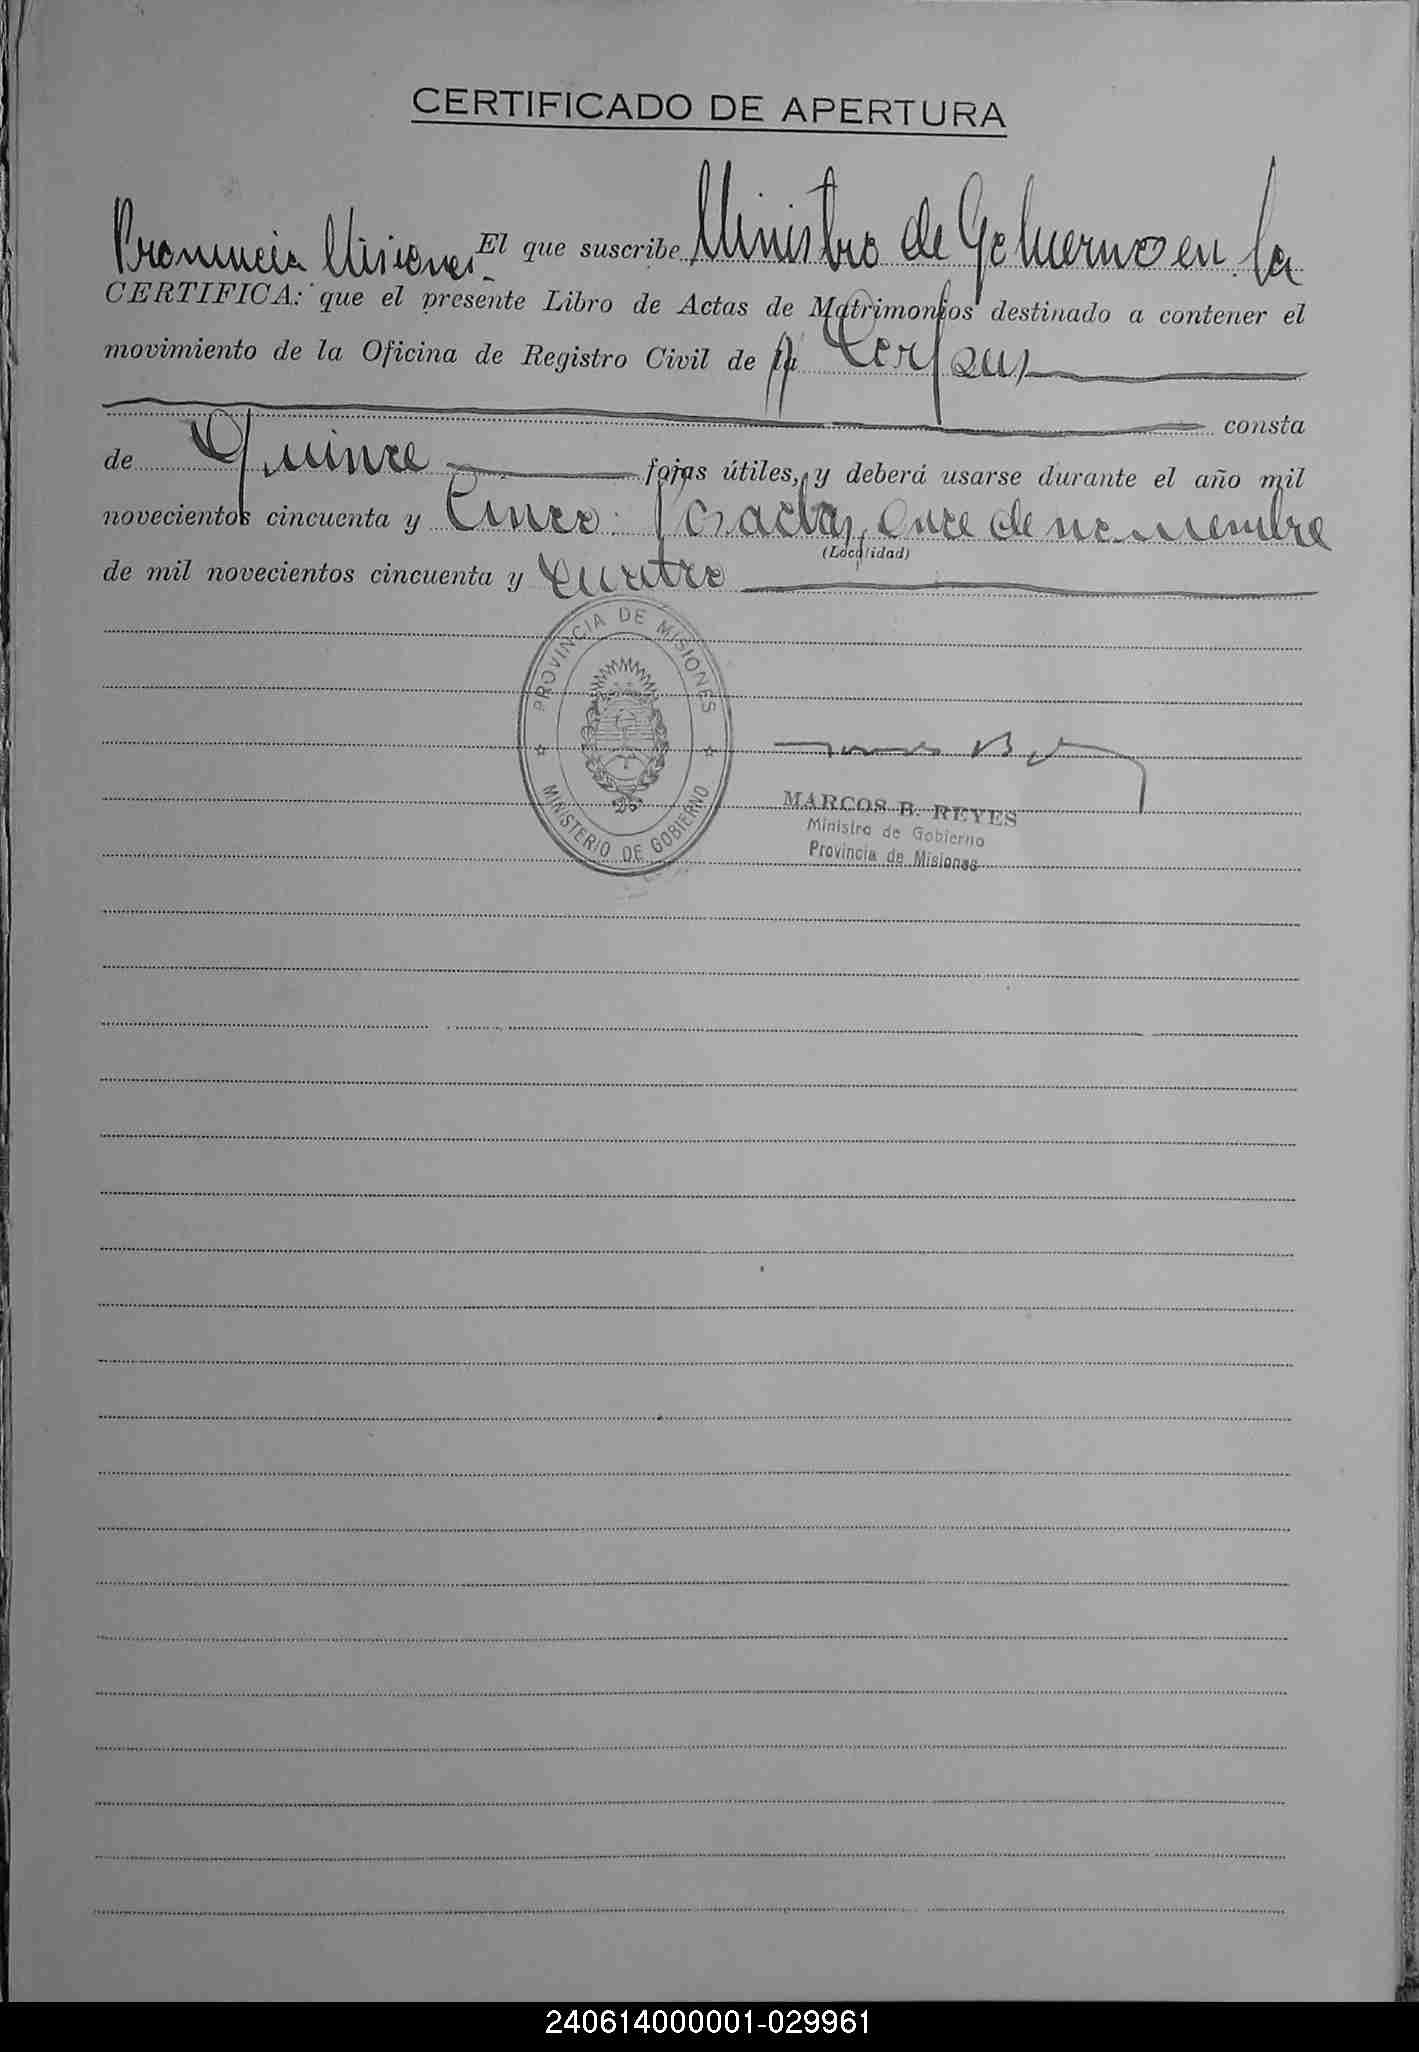 CERTIFICADO DE APERTURA
El que suscribe Ministro de Gobierno en la
Provincia Misiones
CERTIFICA: que el presente Libro de Actas de Matrimonios destinado a contener el
movimiento de la Oficina de Registro Civil de
consta
de Quince fojas útiles, y deberá usarse durante el año mil
novecientos cincuenta y Cinco. Posadas, once de noviembre
(Localidad)
de mil novecientos cincuenta y cuatro
PROVINCIA DE MISIONES
MINISTERIO DE GOBIERNO
MARCOS B. REYES
Ministro de Gobierno
Provincia de Misiones
240614000001-029961